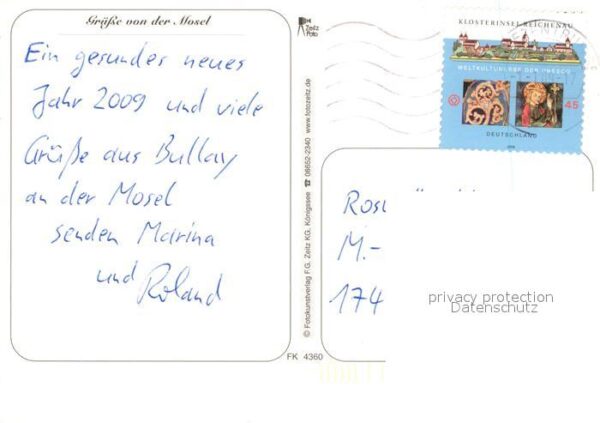 Grüße von der Mosel
Ein gesundes neues
Jahr 2009 und viele
Grüße aus Bullay
an der Mosel
senden Marina
und Roland
Zeitz
Foto
© Fotokunstverlag F.G. Zeitz KG, Königssee ☎ 06652-2340 www.fotozeitz.de
FK 4360
KLOSTERINSEL REICHENAU
WELTKULTURERBE DER UNESCO
45
DEUTSCHLAND
M.-
174
privacy protection
Datenschutz